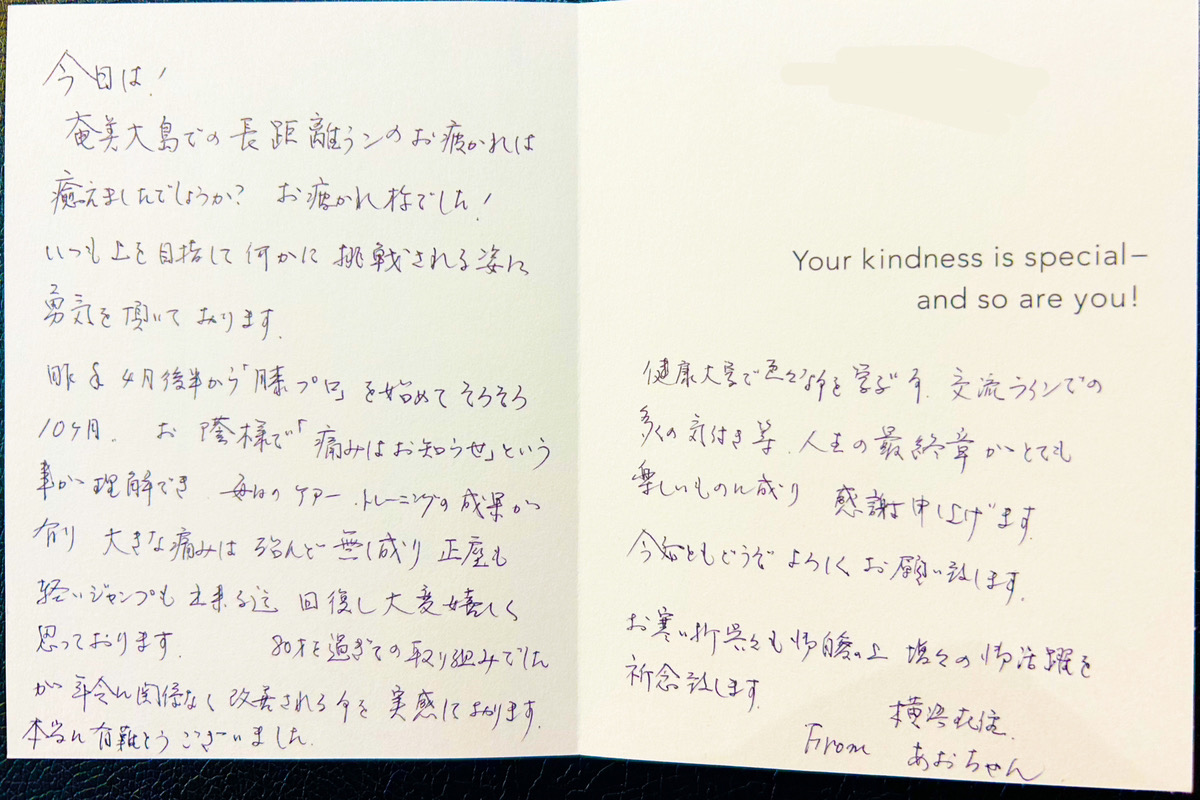 今日は!
奄美大島での長距離ランのお疲かれは
癒えましたでしょうか? お疲かれ様でした!
いつも上を目指して何かに挑戦される姿に
勇気を頂いております.
昨年4月後半から「膝プロ」を始めてそろそろ
10ヶ月. お蔭様で「痛みはお知らせ」という
事が理解でき. 毎日のケアー.トレーニングの成果が
有り 大きな痛みは殆んど無し成り 正座も
軽いジャンプも出来る迄 回復し大変嬉しく
思っております. 80才を過ぎての取り組みでした
が年令に関係なく改善される事を実感しております.
本当に有難とうございました.
Your kindness is special–
and so are you!
健康大学で色々な事を学ぶ事. 交流ラインでの
多くの気付き等. 人生の最終章がとても
楽しいものに成り 感謝申し上げます.
今后ともどうぞよろしくお願い致します.
お寒い折 呉々も御自愛の上 益々の御活躍を
祈念致します.
横浜在住
From あおちゃん